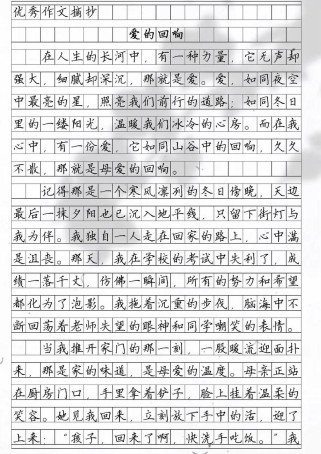 优秀作文摘抄
爱的回响
在人生的长河中，有一种力量，它无声却
强大，细腻却深沉，那就是爱。爱，如同夜空
中最亮的星，照亮我们前行的道路；如同冬日
里的一缕阳光，温暖我们冰冷的心房。而在我
心中，有一份爱，它如同山谷中的回响，久久
不散，那就是母爱的回响。
记得那是一个寒风凛冽的冬日傍晚，天边
最后一抹夕阳也已沉入地平线，只留下街灯与
我为伴。我独自一人走在回家的路上，心中满
是沮丧。那天，我在学校的考试中失利了，成
绩一落千丈，仿佛一瞬间，所有的努力和希望
都化为了泡影。我拖着沉重的步伐，脑海中不
断回荡着老师失望的眼神和同学嘲笑的表情。
当我推开家门的那一刻，一股暖流迎面扑
来，那是家的味道，是母爱的温度。母亲正站
在厨房门口，手里拿着铲子，脸上挂着温柔的
笑容。她见我回来，立刻放下手中的活，迎了
上来：“孩子，回来了啊，快洗手吃饭。”我